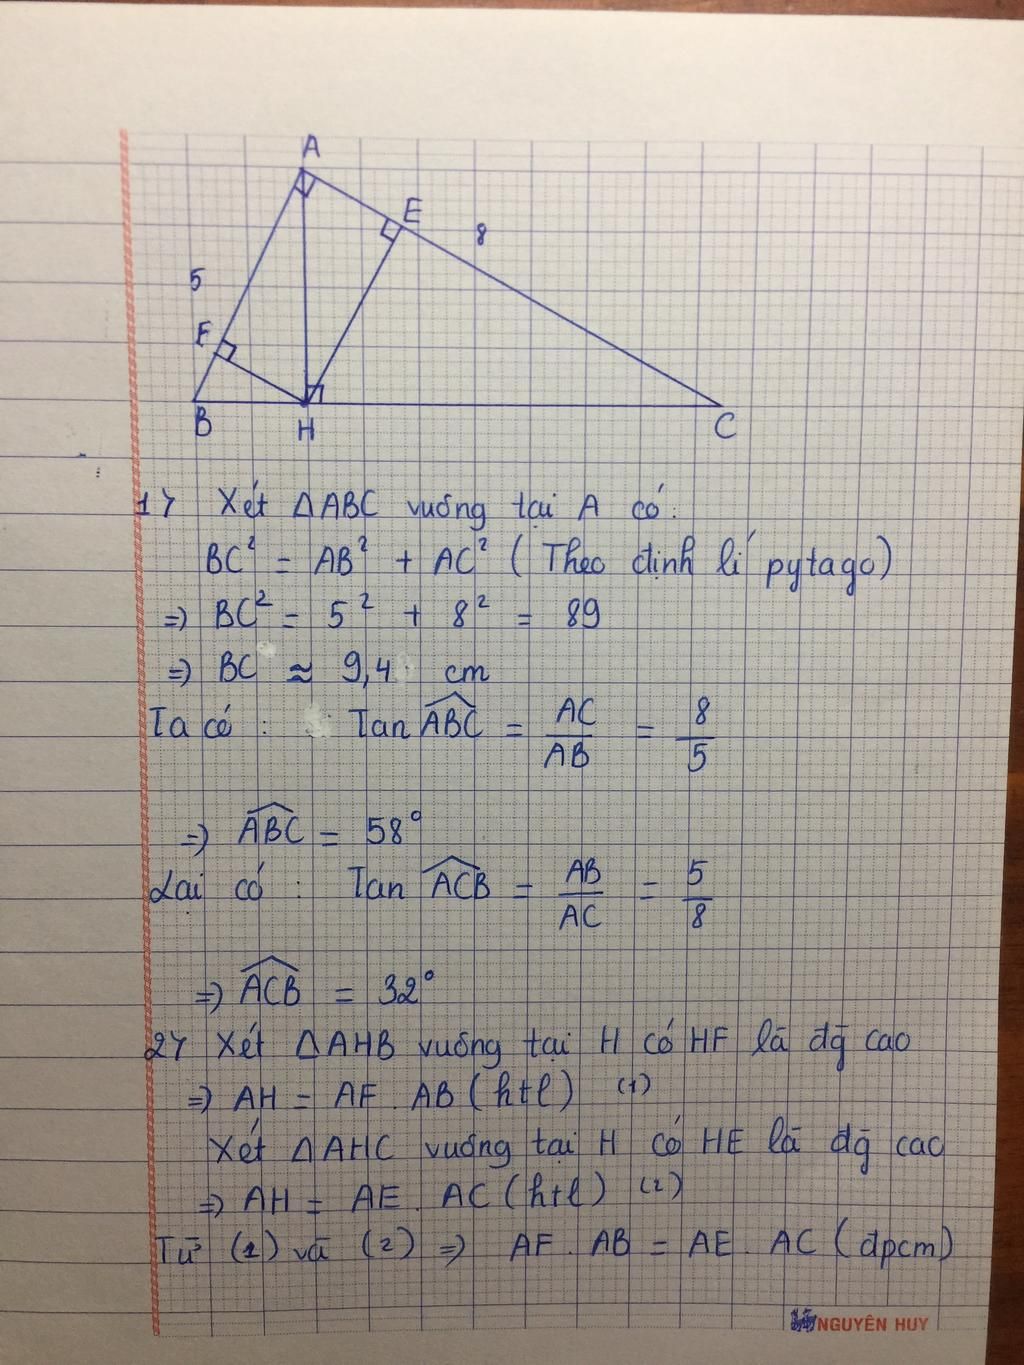 A
E
8
5
F
B
H
C
1> Xét ΔABC vuông tại A có:
BC² = AB² + AC² ( Theo định lí pytago)
=> BC² = 5² + 8² = 89
=> BC ≈ 9,4 cm
Ta có : Tan \widehat{ABC} = AC/AB = 8/5
=> \widehat{ABC} = 58°
Lại có : Tan \widehat{ACB} = AB/AC = 5/8
=> \widehat{ACB} = 32°
2> Xét ΔAHB vuông tại H có HF là đg̀ cao
=> AH = AF . AB (htl) (1)
Xét ΔAHC vuông tại H có HE là đg̀ cao
=> AH = AE . AC (htl) (2)
Từ (1) và (2) => AF . AB = AE . AC (đpcm)
NGUYÊN HUY